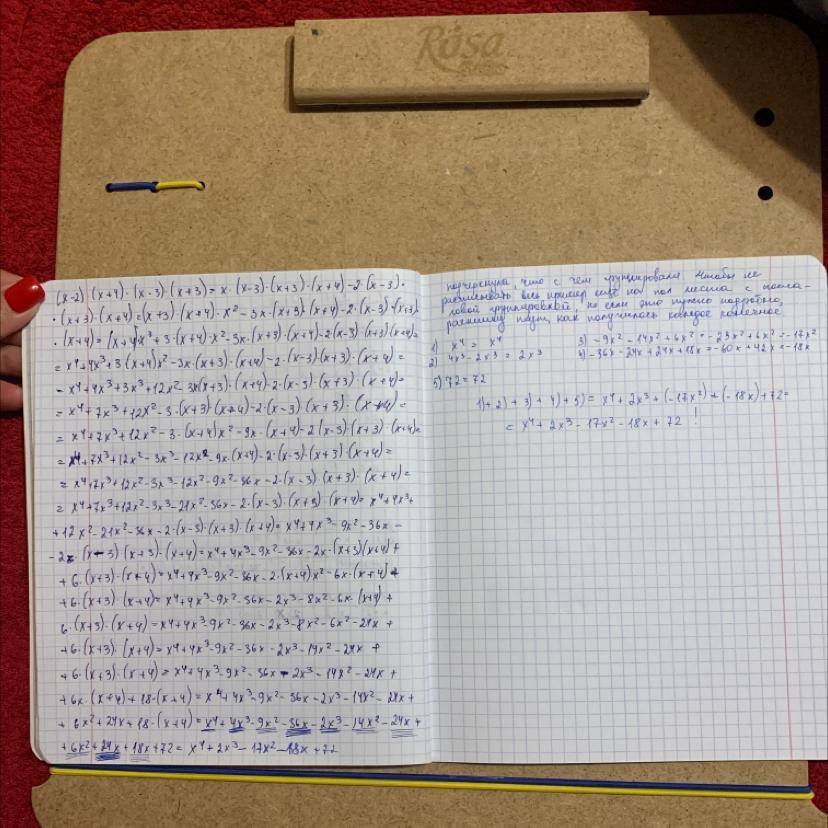 Rosa
(x-2)·(x+4)·(x-3)·(x+3)=x·(x-3)·(x+3)·(x+4)-2·(x-3)·
·(x+3)·(x+4)=(x+3)·(x+4)·x²-3x·(x+3)·(x+4)-2·(x-3)·(x+3)·
·(x+4)=(x+4)x³+3·(x+4)·x²-3x·(x+3)·(x+4)-2·(x-3)·(x+3)·(x+4)=
=x⁴+4x³+3(x+4)x²-3x·(x+3)·(x+4)-2·(x-3)(x+3)·(x+4)=
=x⁴+4x³+3x³+12x²-3x(x+3)·(x+4)-2·(x-3)·(x+3)·(x+4)=
=x⁴+7x³+12x²-3·(x+3)·(x+4)-2·(x-3)(x+3)·(x+4)=
=x⁴+7x³+12x²-3·(x+4)x²-9x·(x+4)-2(x-3)·(x+3)·(x+4)=
=x⁴+7x³+12x²-3x³-12x²-9x·(x+4)-2·(x-3)·(x+3)·(x+4)=
=x⁴+7x³+12x²-3x³-12x²-9x²-36x-2·(x-3)·(x+3)·(x+4)=
=x⁴+7x³+12x²-3x³-21x²-36x-2·(x-3)·(x+3)·(x+4)=x⁴+4x³+
+12x²-21x²-36x-2·(x-3)·(x+3)·(x+4)=x⁴+4x³-9x²-36x-
-2·(x-3)·(x+3)·(x+4)=x⁴+4x³-9x²-36x-2x·(x+3)(x+4)+
+6·(x+3)·(x+4)=x⁴+4x³-9x²-36x-2·(x+4)x²-6x·(x+4)+
+6·(x+3)·(x+4)=x⁴+4x³-9x²-36x-2x³-8x²-6x·(x+4)+
6·(x+3)·(x+4)=x⁴+4x³-9x²-36x-2x³-8x²-6x²-24x+
+6·(x+3)·(x+4)=x⁴+4x³-9x²-36x-2x³-14x²-24x+
+6·(x+3)·(x+4)=x⁴+4x³-9x²-36x-2x³-14x²-24x+
+6x·(x+4)+18·(x+4)=x⁴+4x³-9x²-36x-2x³-14x²-24x+
+6x²+24x+18·(x+4)=x⁴+4x³-9x²-36x-2x³-14x²-24x+
+6x²+24x+18x+72=x⁴+2x³-17x²-18x+72
подчеркнула, что с чем группировала. Чтобы не
расписывать весь пример ещё на пол листа с
группировкой, но если это нужно подробно,
распишу как получилось каждое конечное
1) x⁴=x⁴
2) 4x³-2x³=2x³
3) -9x²-14x²+6x²=-23x²+6x²=-17x²
4) -36x-24x+24x+18x=-60x+42x=-18x
5) 72=72
1)+2)+3)+4)+5)=x⁴+2x³+(-17x²)+(-18x)+72=
=x⁴+2x³-17x²-18x+72 !